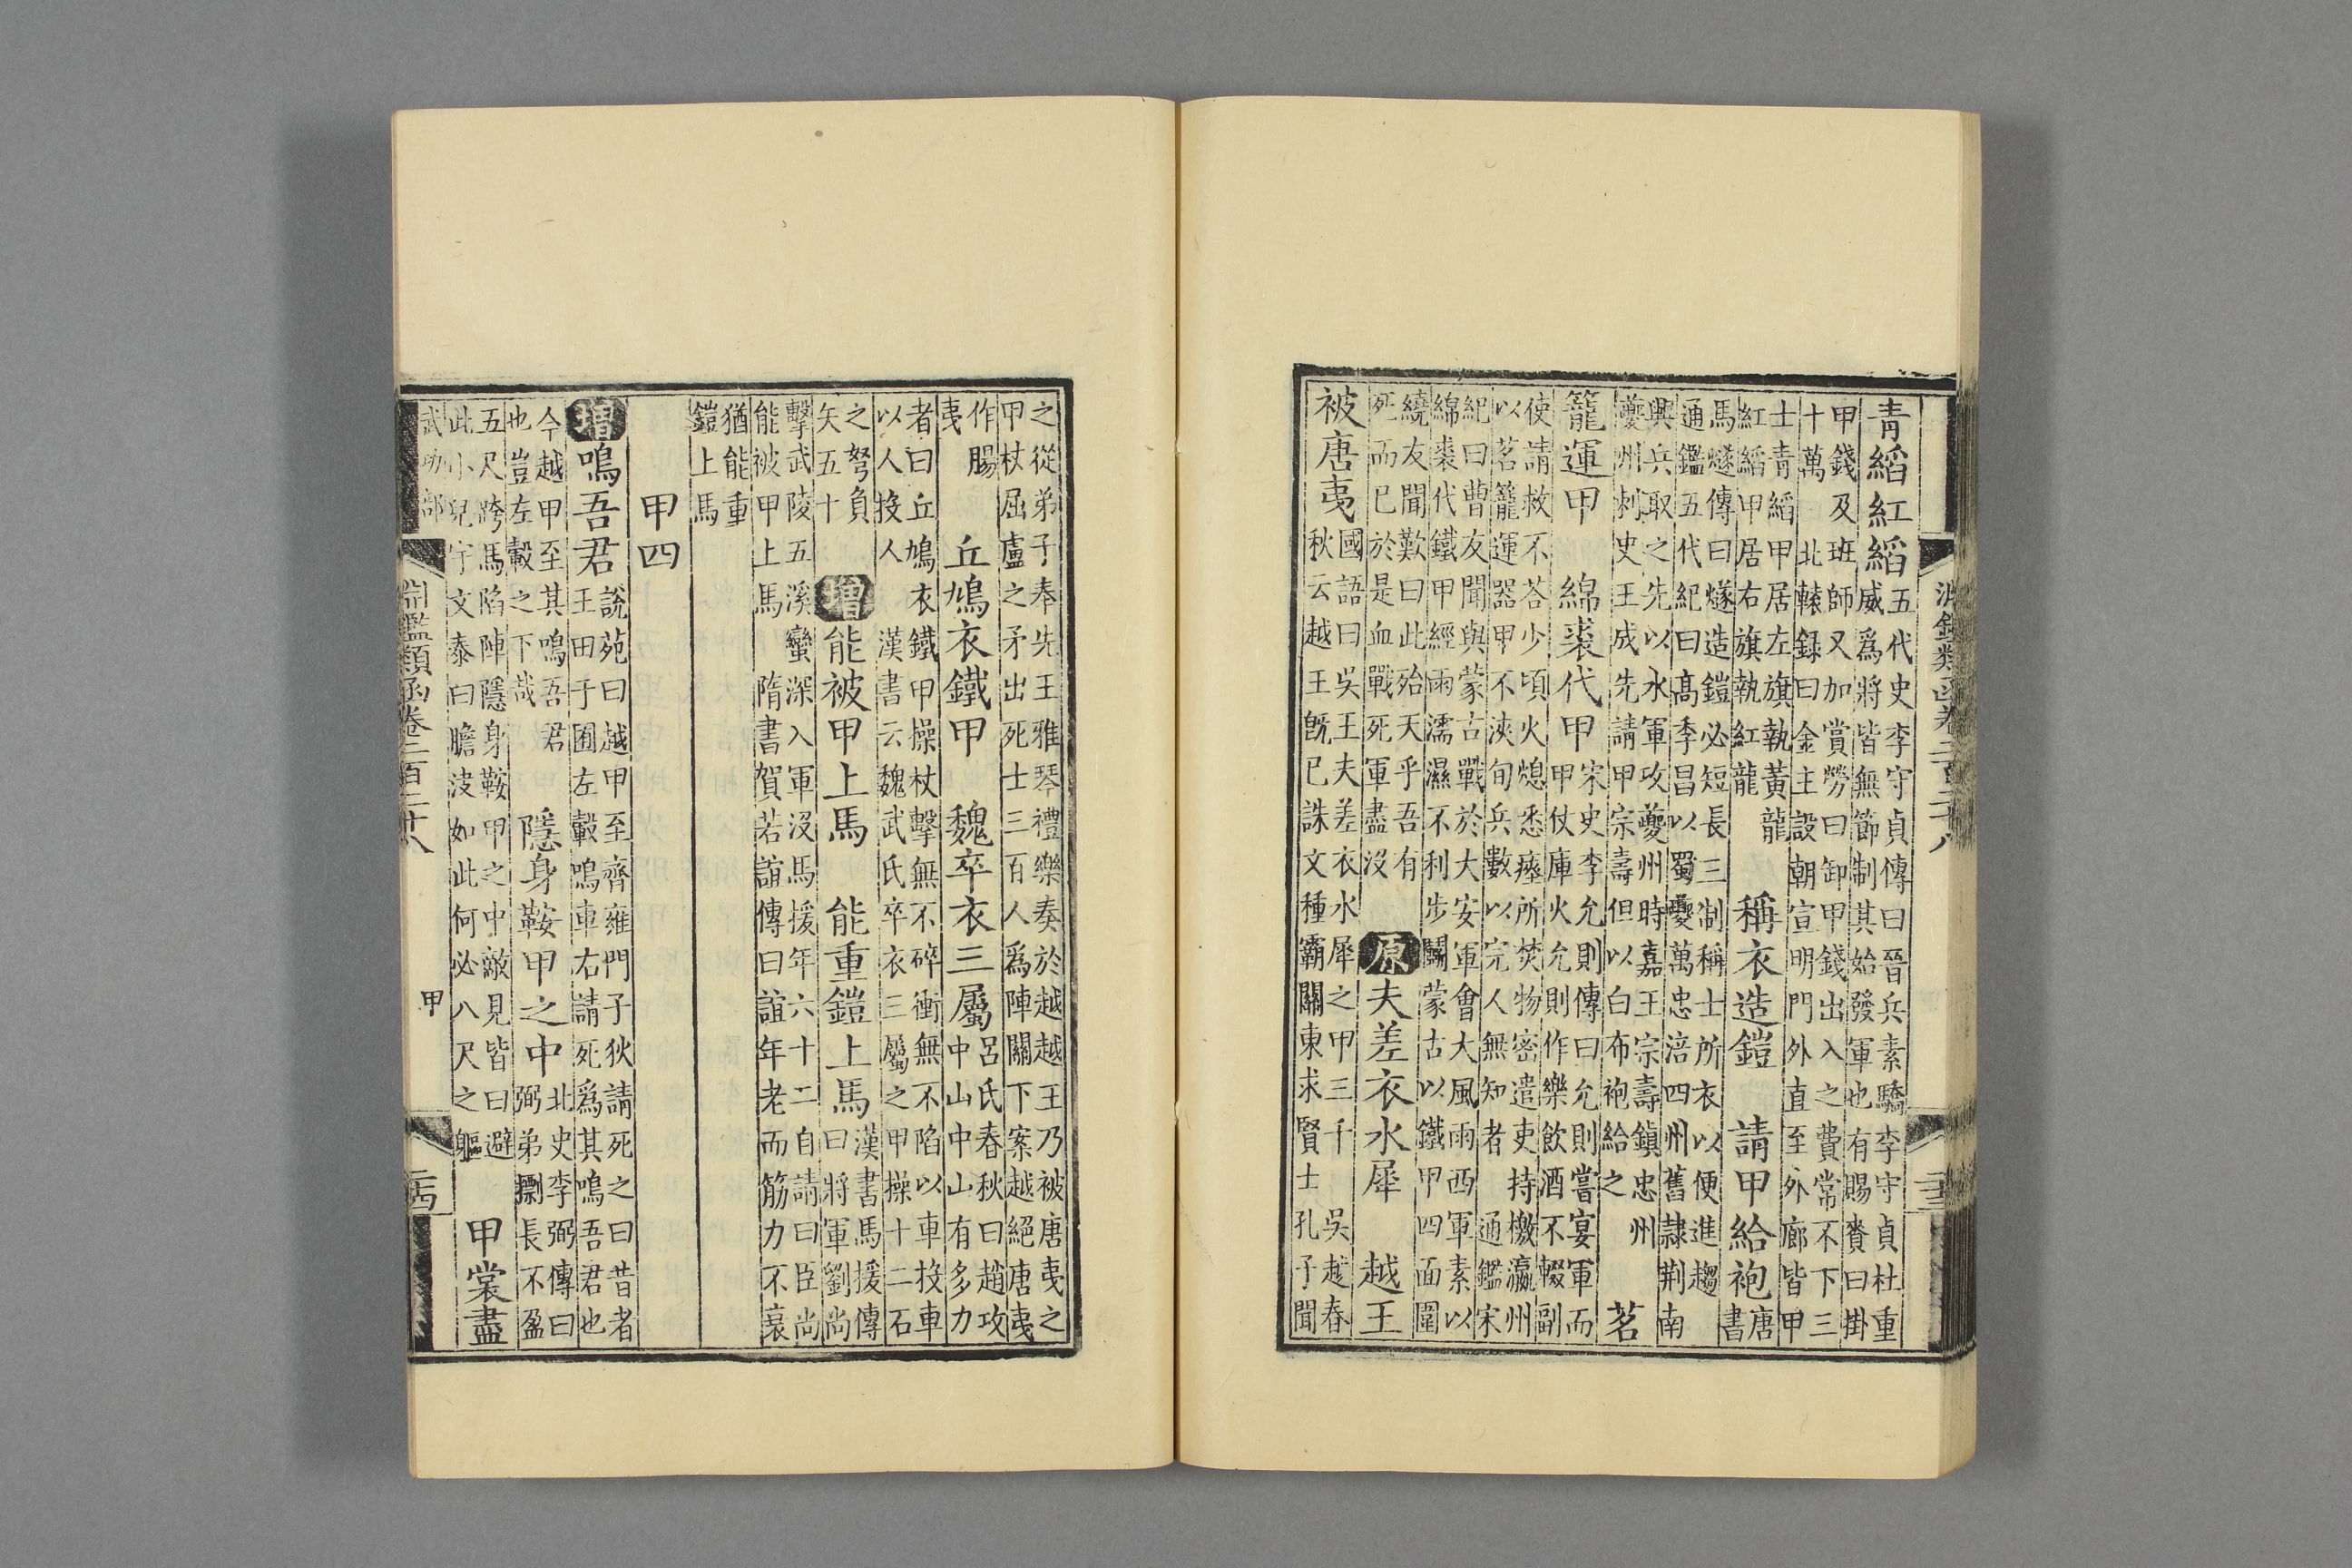 淵鑑類函卷二百二十八
青縚紅縚
五代史李守貞傳曰晉兵素驕李守貞杜重
威爲將皆無節制其始發軍也有賜賚曰掛
甲錢及班師又加賞勞曰卸甲錢出入之費常不下三
十萬　北轅録曰金主設朝宣明門外直至外廊皆甲
士青縚甲居左旗執黃龍
紅縚甲居右旗執紅龍
稱衣造鎧　請甲給袍
唐
書
馬燧傳曰燧造鎧必短長三制稱士所衣以便進趨
通鑑五代紀曰高季昌以蜀夔萬忠涪四州舊隷荆南
興兵取之先以水軍攻夔州時嘉王宗壽鎭忠州
夔州刺史王成先請甲宗壽但以白布袍給之
茗
籠運甲　綿裘代甲
宋史李允則傳曰允則嘗宴軍而
甲仗庫火允則作樂飲酒不輟副
使請救不荅少頃火熄悉瘞所焚物密遣吏持檄瀛州
以茗籠運器甲不浹旬兵數以完人無知者　通鑑宋
紀曰曹友聞與蒙古戰於大安軍會大風雨西軍素以
綿裘代鐵甲經雨濡濕不利步鬭蒙古以鐵甲四面圍
繞友聞歎曰此殆天乎吾有
死而已於是血戰死軍盡沒
原夫差衣水犀　越王
被唐夷
國語曰吳王夫差衣水犀之甲三千　吳越春
秋云越王旣已誅文種霸關東求賢士孔子聞
之從弟子奉先王雅琴禮樂奏於越越王乃被唐夷之
甲杖屈盧之矛出死士三百人爲陣關下案越絕唐夷
作腸
夷
丘鳩衣鐵甲　魏卒衣三屬
呂氏春秋曰趙攻
中山中山有多力
者曰丘鳩衣鐵甲操杖擊無不碎衝無不陷以車投車
以人投人　漢書云魏武氏卒衣三屬之甲操十二石
之弩負
矢五十
增能被甲上馬　能重鎧上馬
漢書馬援傳
曰將軍劉尚
擊武陵五溪蠻深入軍沒馬援年六十二自請曰臣尚
能被甲上馬　隋書賀若誼傳曰誼年老而筋力不衰
猶能重
鎧上馬
甲四
增鳴吾君
說苑曰越甲至齊雍門子狄請死之曰昔者
王田于囿左轂鳴車右請死爲其鳴吾君也
今越甲至其鳴吾君
也豈左轂之下哉
隱身鞍甲之中
北史李弼傳曰
弼弟㯹長不盈
五尺跨馬陷陣隱身鞍甲之中敵見皆曰避
此小兒宇文泰曰膽决如此何必八尺之軀
甲裳盡
武功部
淵鑑類函卷二百二十八
甲